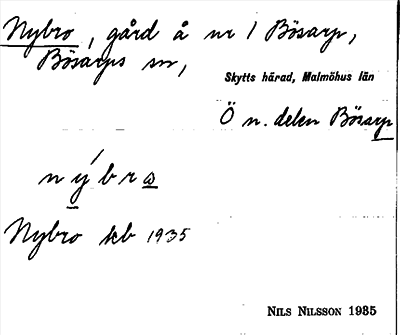 Nybro, gård å nr 1 Bösarp,
Bösarps sn,
Skytts härad, Malmöhus län
Ö n. delen Bösarp
nýbrω
Nybro kb 1935
NILS NILSSON 1935